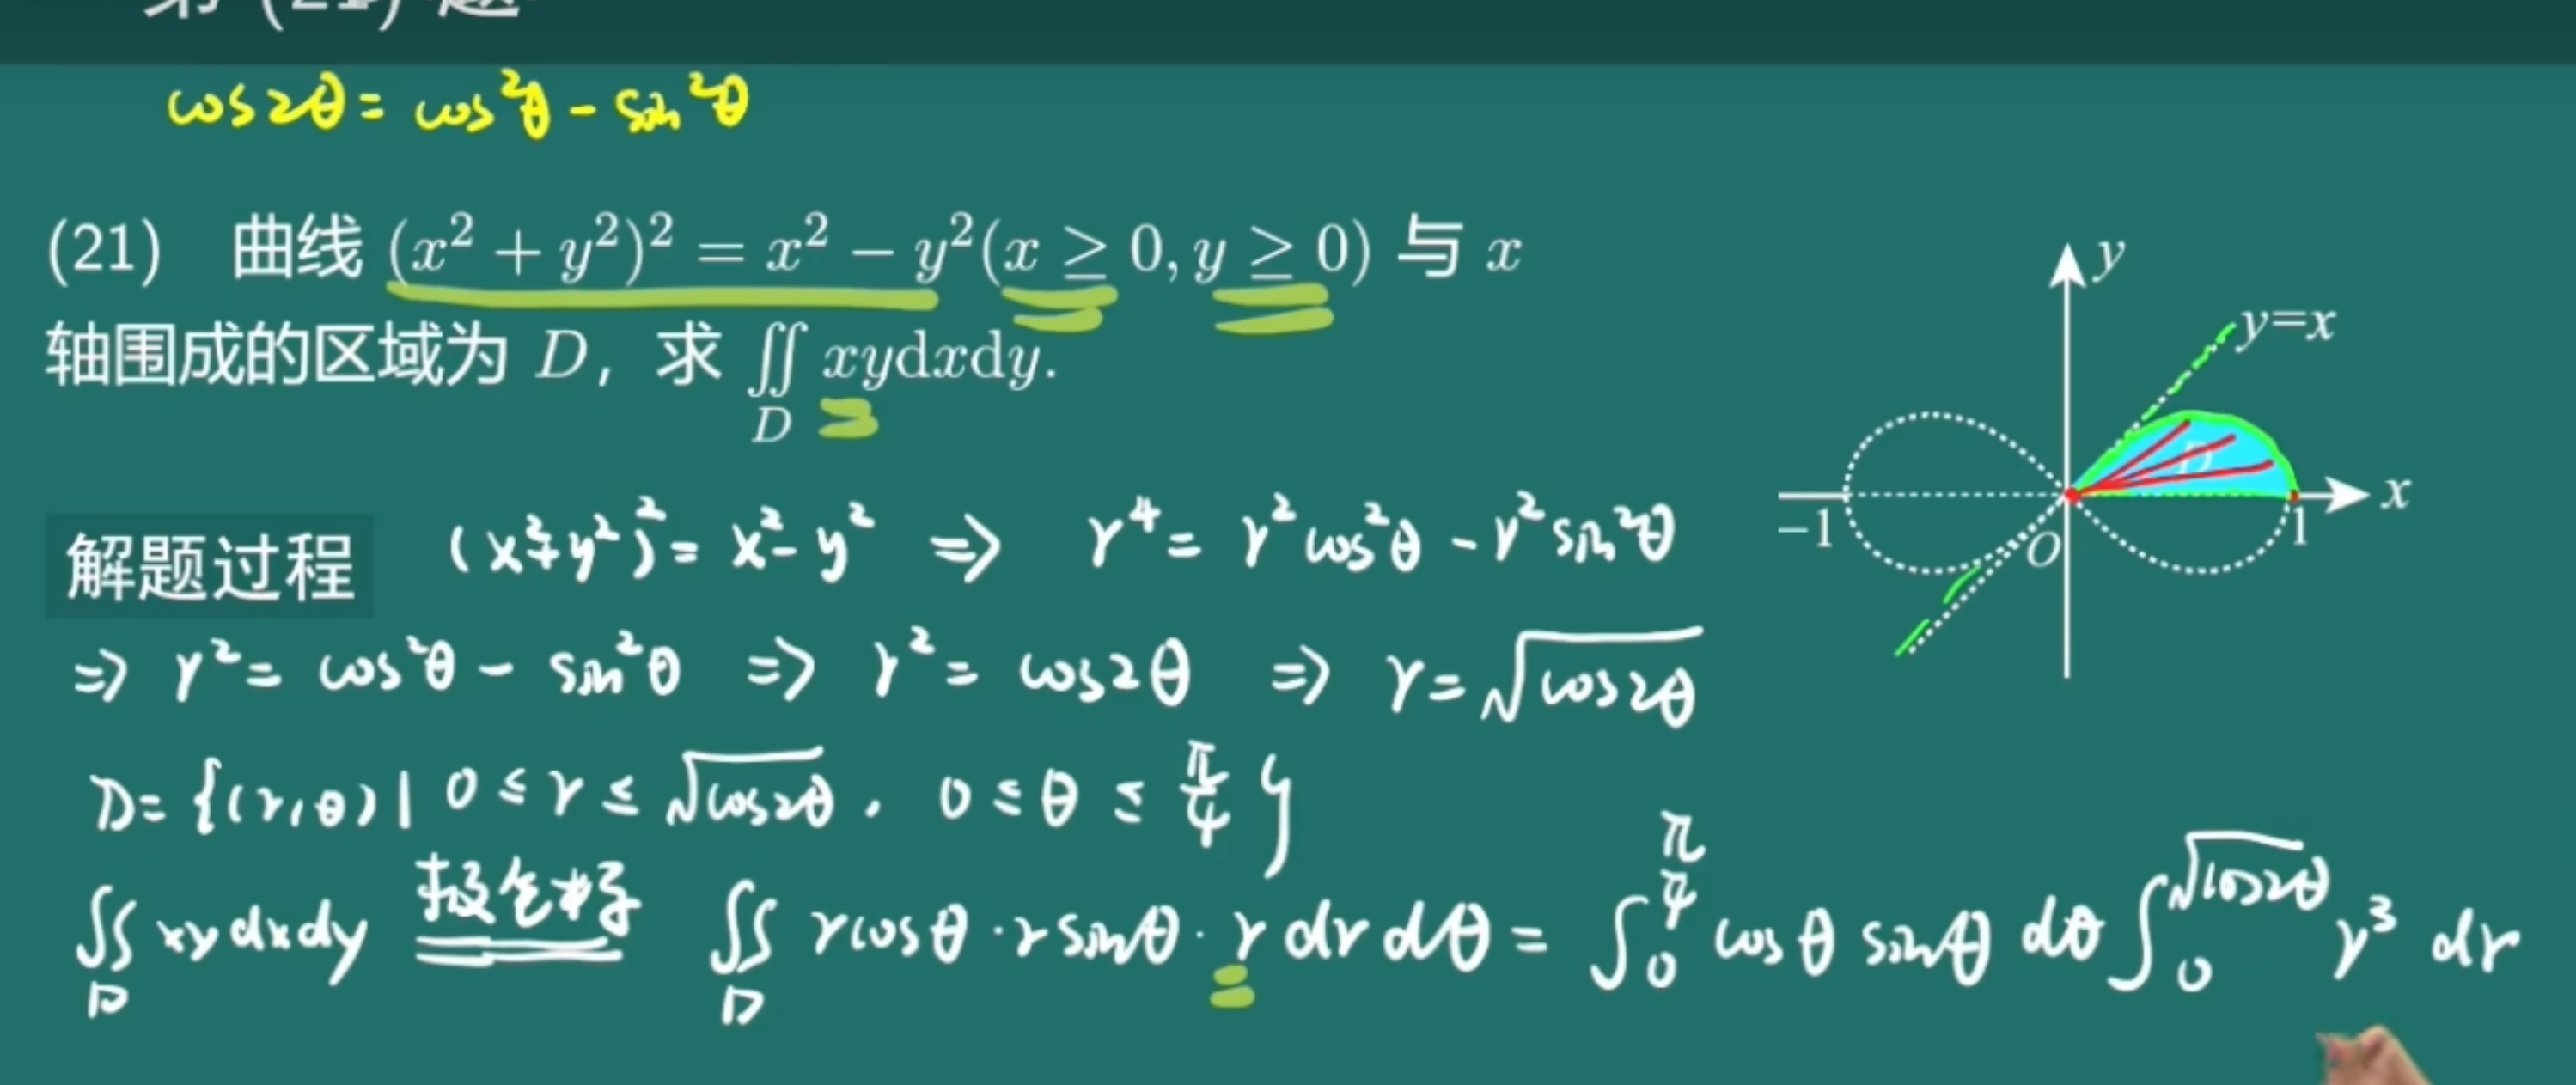 第 (21) 题
cos2θ = cos²θ - sin²θ
(21) 曲线 (x² + y²)² = x² − y²(x ≥ 0, y ≥ 0) 与 x
轴围成的区域为 D，求 ∬_D xydxdy.
y
y=x
D
x
−1
O
1
解题过程 (x²+y²)² = x²-y² ⇒ r⁴ = r²cos²θ - r²sin²θ
⇒ r² = cos²θ - sin²θ ⇒ r² = cos2θ ⇒ r = √cos2θ
D = {(r,θ) | 0 ≤ r ≤ √cos2θ, 0 ≤ θ ≤ π/4}
∬_D xydxdy 极坐标 ∬_D rcosθ · rsinθ · r dr dθ = ∫₀^(π/4) cosθ sinθ dθ ∫₀^(√cos2θ) r³ dr